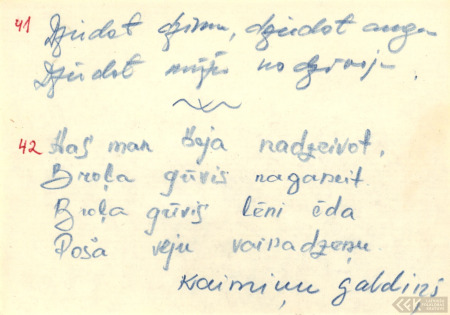 41
Dzīdot dzimu, dzīdot augu
Dzīdot mūžu nodzivoju.
42 Kaš man beja nadzeivot,
Broļa gūvis naganeit.
Broļa gūviš lēni ēda
Poša veju vainadzeņu.
Kaimiņu galdiņš